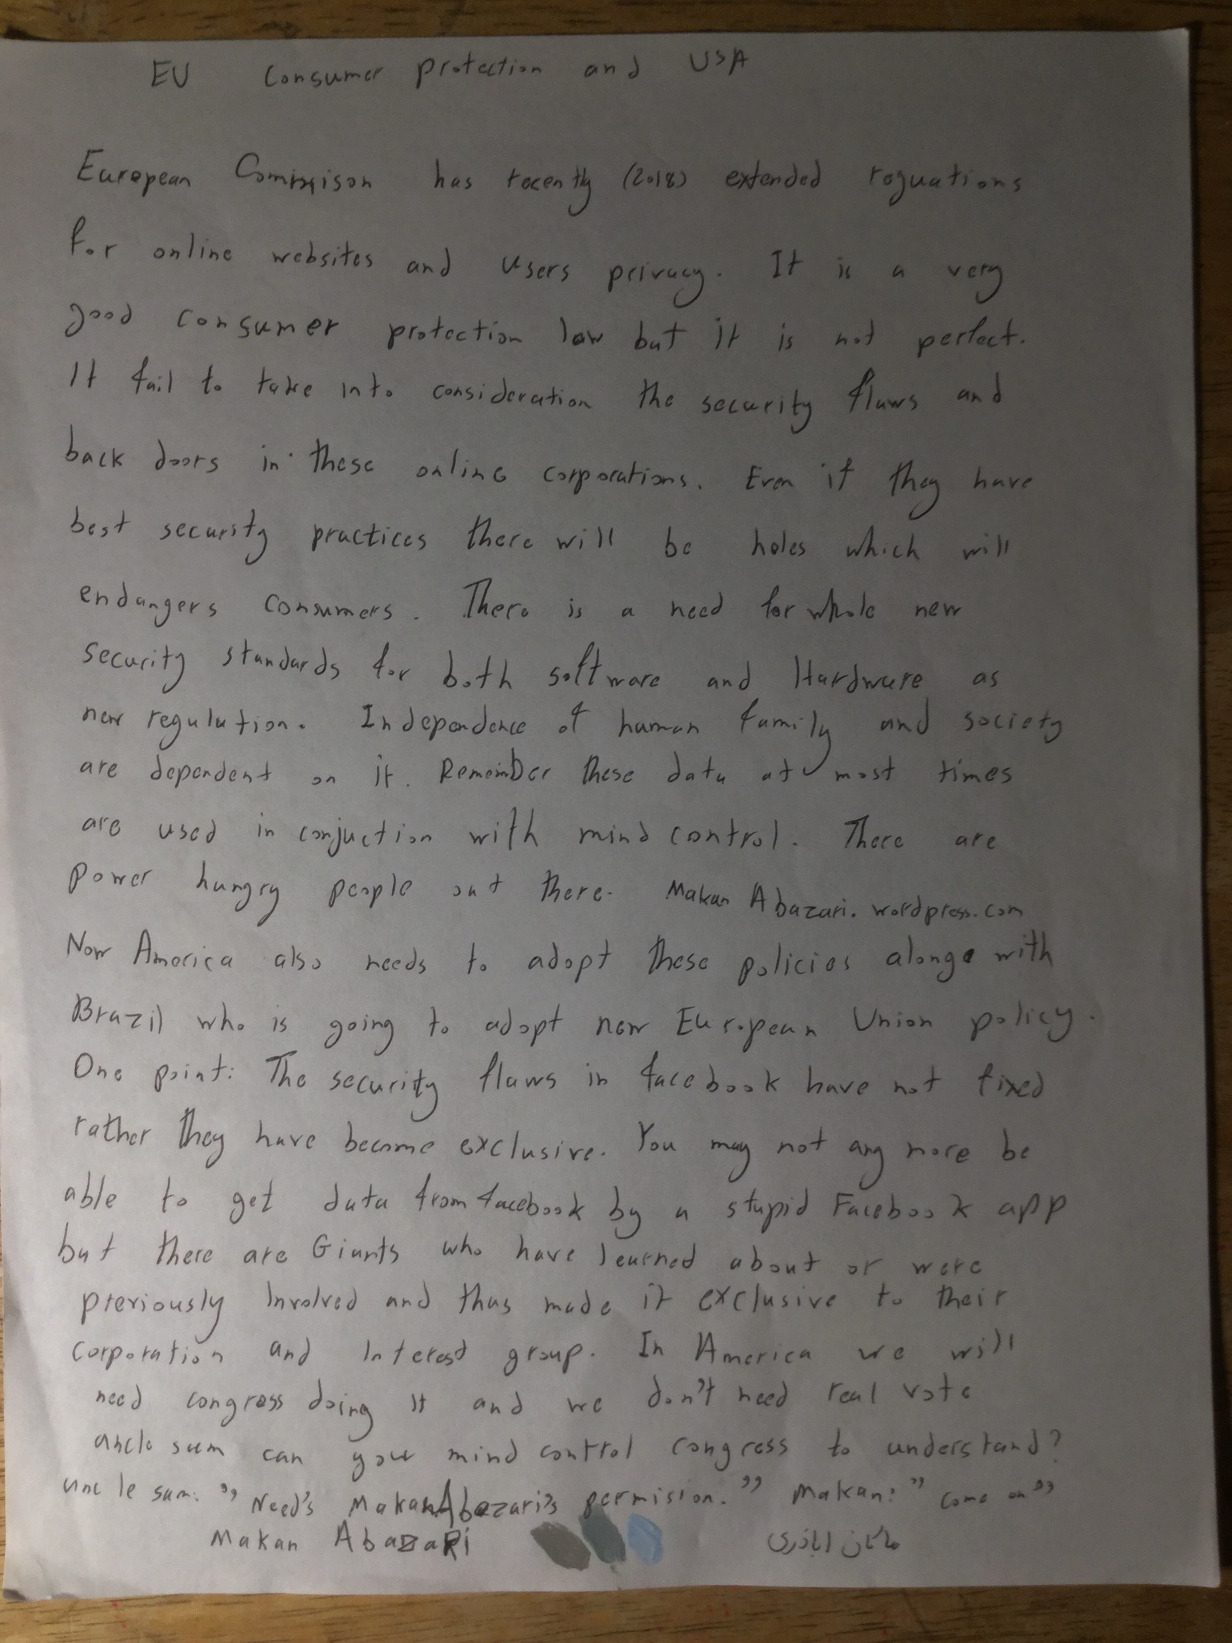 EU Consumer protection and USA
European Commison has recently (2018) extended roguations
for online websites and users privacy. It is a very
good consumer protection low but it is not perfect.
It fail to take into consideration the security flaws and
back doors in these online corporations. Even if they have
best security practices there will be holes which will
endangers consumers. There is a need for whole new
security standards for both software and Hardware as
new regulution. Independence of human family and society
are dependent on it. Remember these data at most times
are used in conjuction with mind control. There are
power hungry people out there. Makan Abazari.wordpress.com
Now America also needs to adopt these policies alonge with
Brazil who is going to adopt new European Union policy.
One point: The security flaws in facebook have not fixed
rather they have become exclusive. You may not any more be
able to get data from facebook by a stupid Facebook app
but there are Giants who have learned about or were
previously Involved and thus made it exclusive to their
corporation and Interest group. In America we will
need congress doing it and we don't need real vote
uncle sum can your mind control congress to understand?
uncle sum: "Need's Makan Abazari's permision." Makan: "come on"
Makan Abazari ماکان اباذری